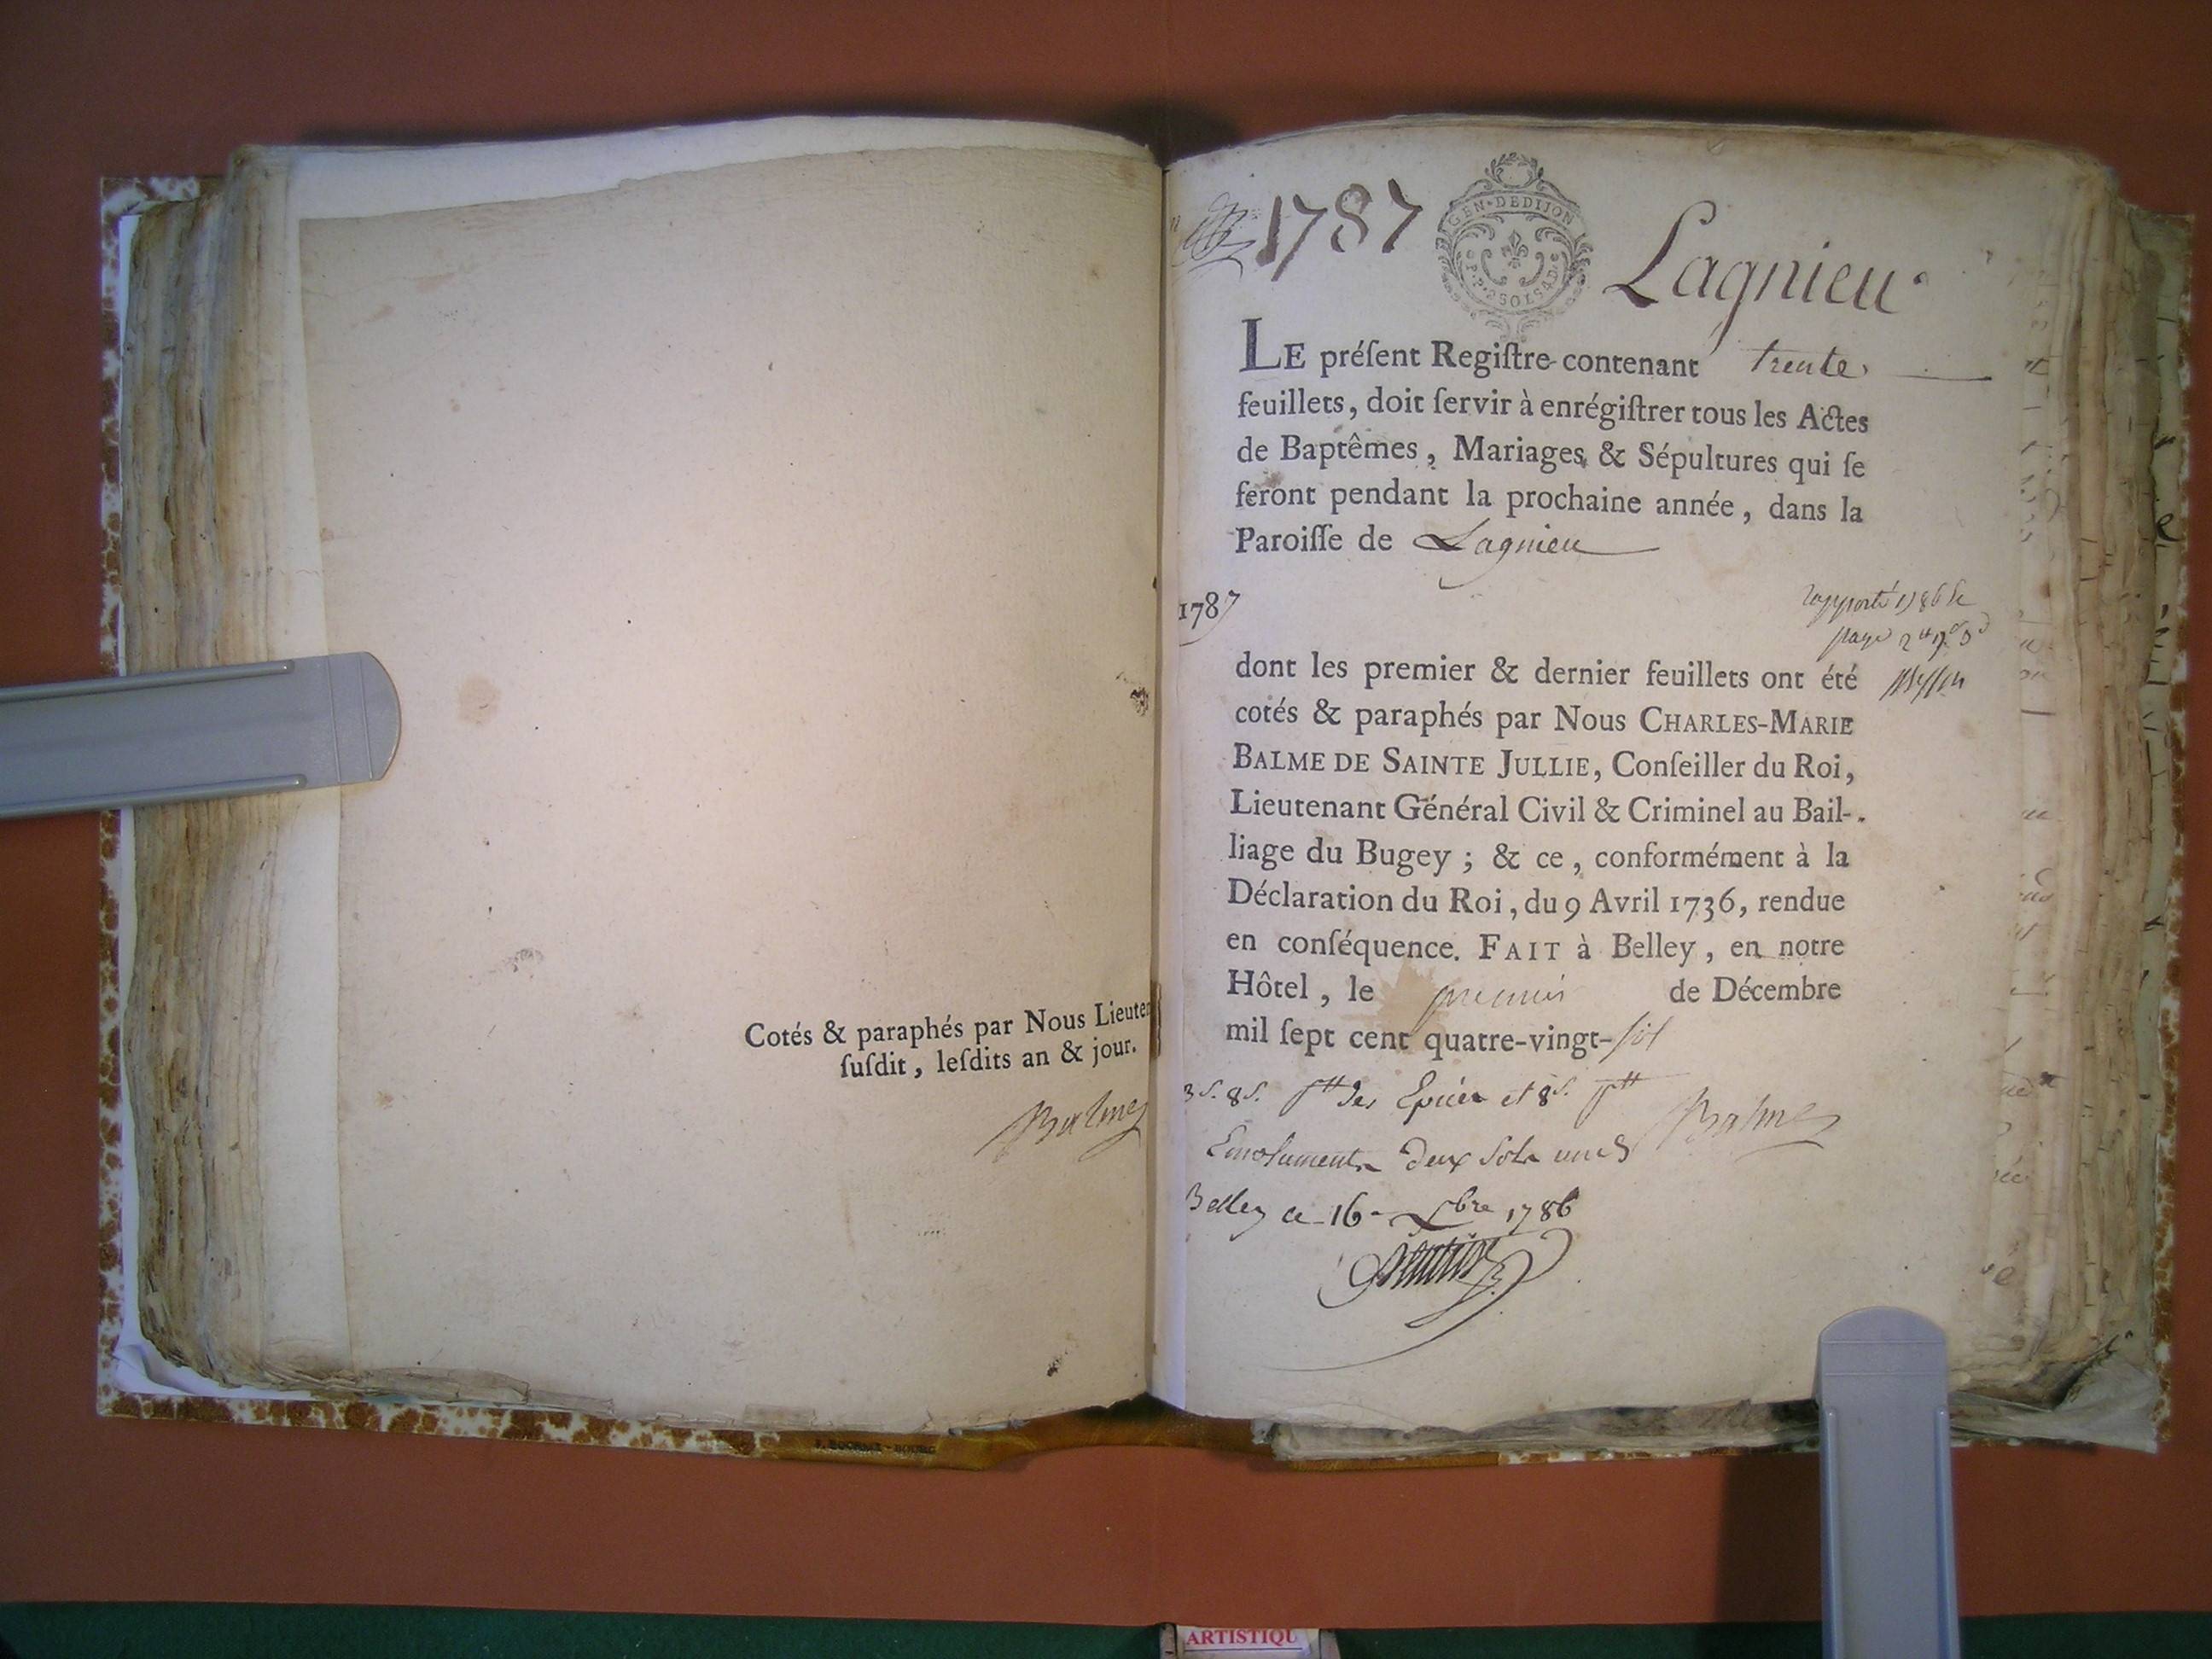 Cotés & paraphés par Nous Lieuten
ſuſdit, leſdits an & jour.
Balme
1787
GEN·DEDIJON
Lagnieu
LE préſent Regiſtre contenant trente
feuillets, doit ſervir à enrégiſtrer tous les Actes
de Baptêmes, Mariages & Sépultures qui ſe
feront pendant la prochaine année, dans la
Paroiſſe de Lagnieu
1787
rapporté 1786
page
dont les premier & dernier feuillets ont été
cotés & paraphés par Nous CHARLES-MARIE
BALME DE SAINTE JULLIE, Conſeiller du Roi,
Lieutenant Général Civil & Criminel au Bail-
liage du Bugey ; & ce, conformément à la
Déclaration du Roi, du 9 Avril 1736, rendue
en conſéquence. FAIT à Belley, en notre
Hôtel, le premier de Décembre
mil ſept cent quatre-vingt-six
3 s. 8 s. des Epices et 8 s.
Emoluments deux sols
Balme
Belley ce 16 Xbre 1786
ARTISTIQU